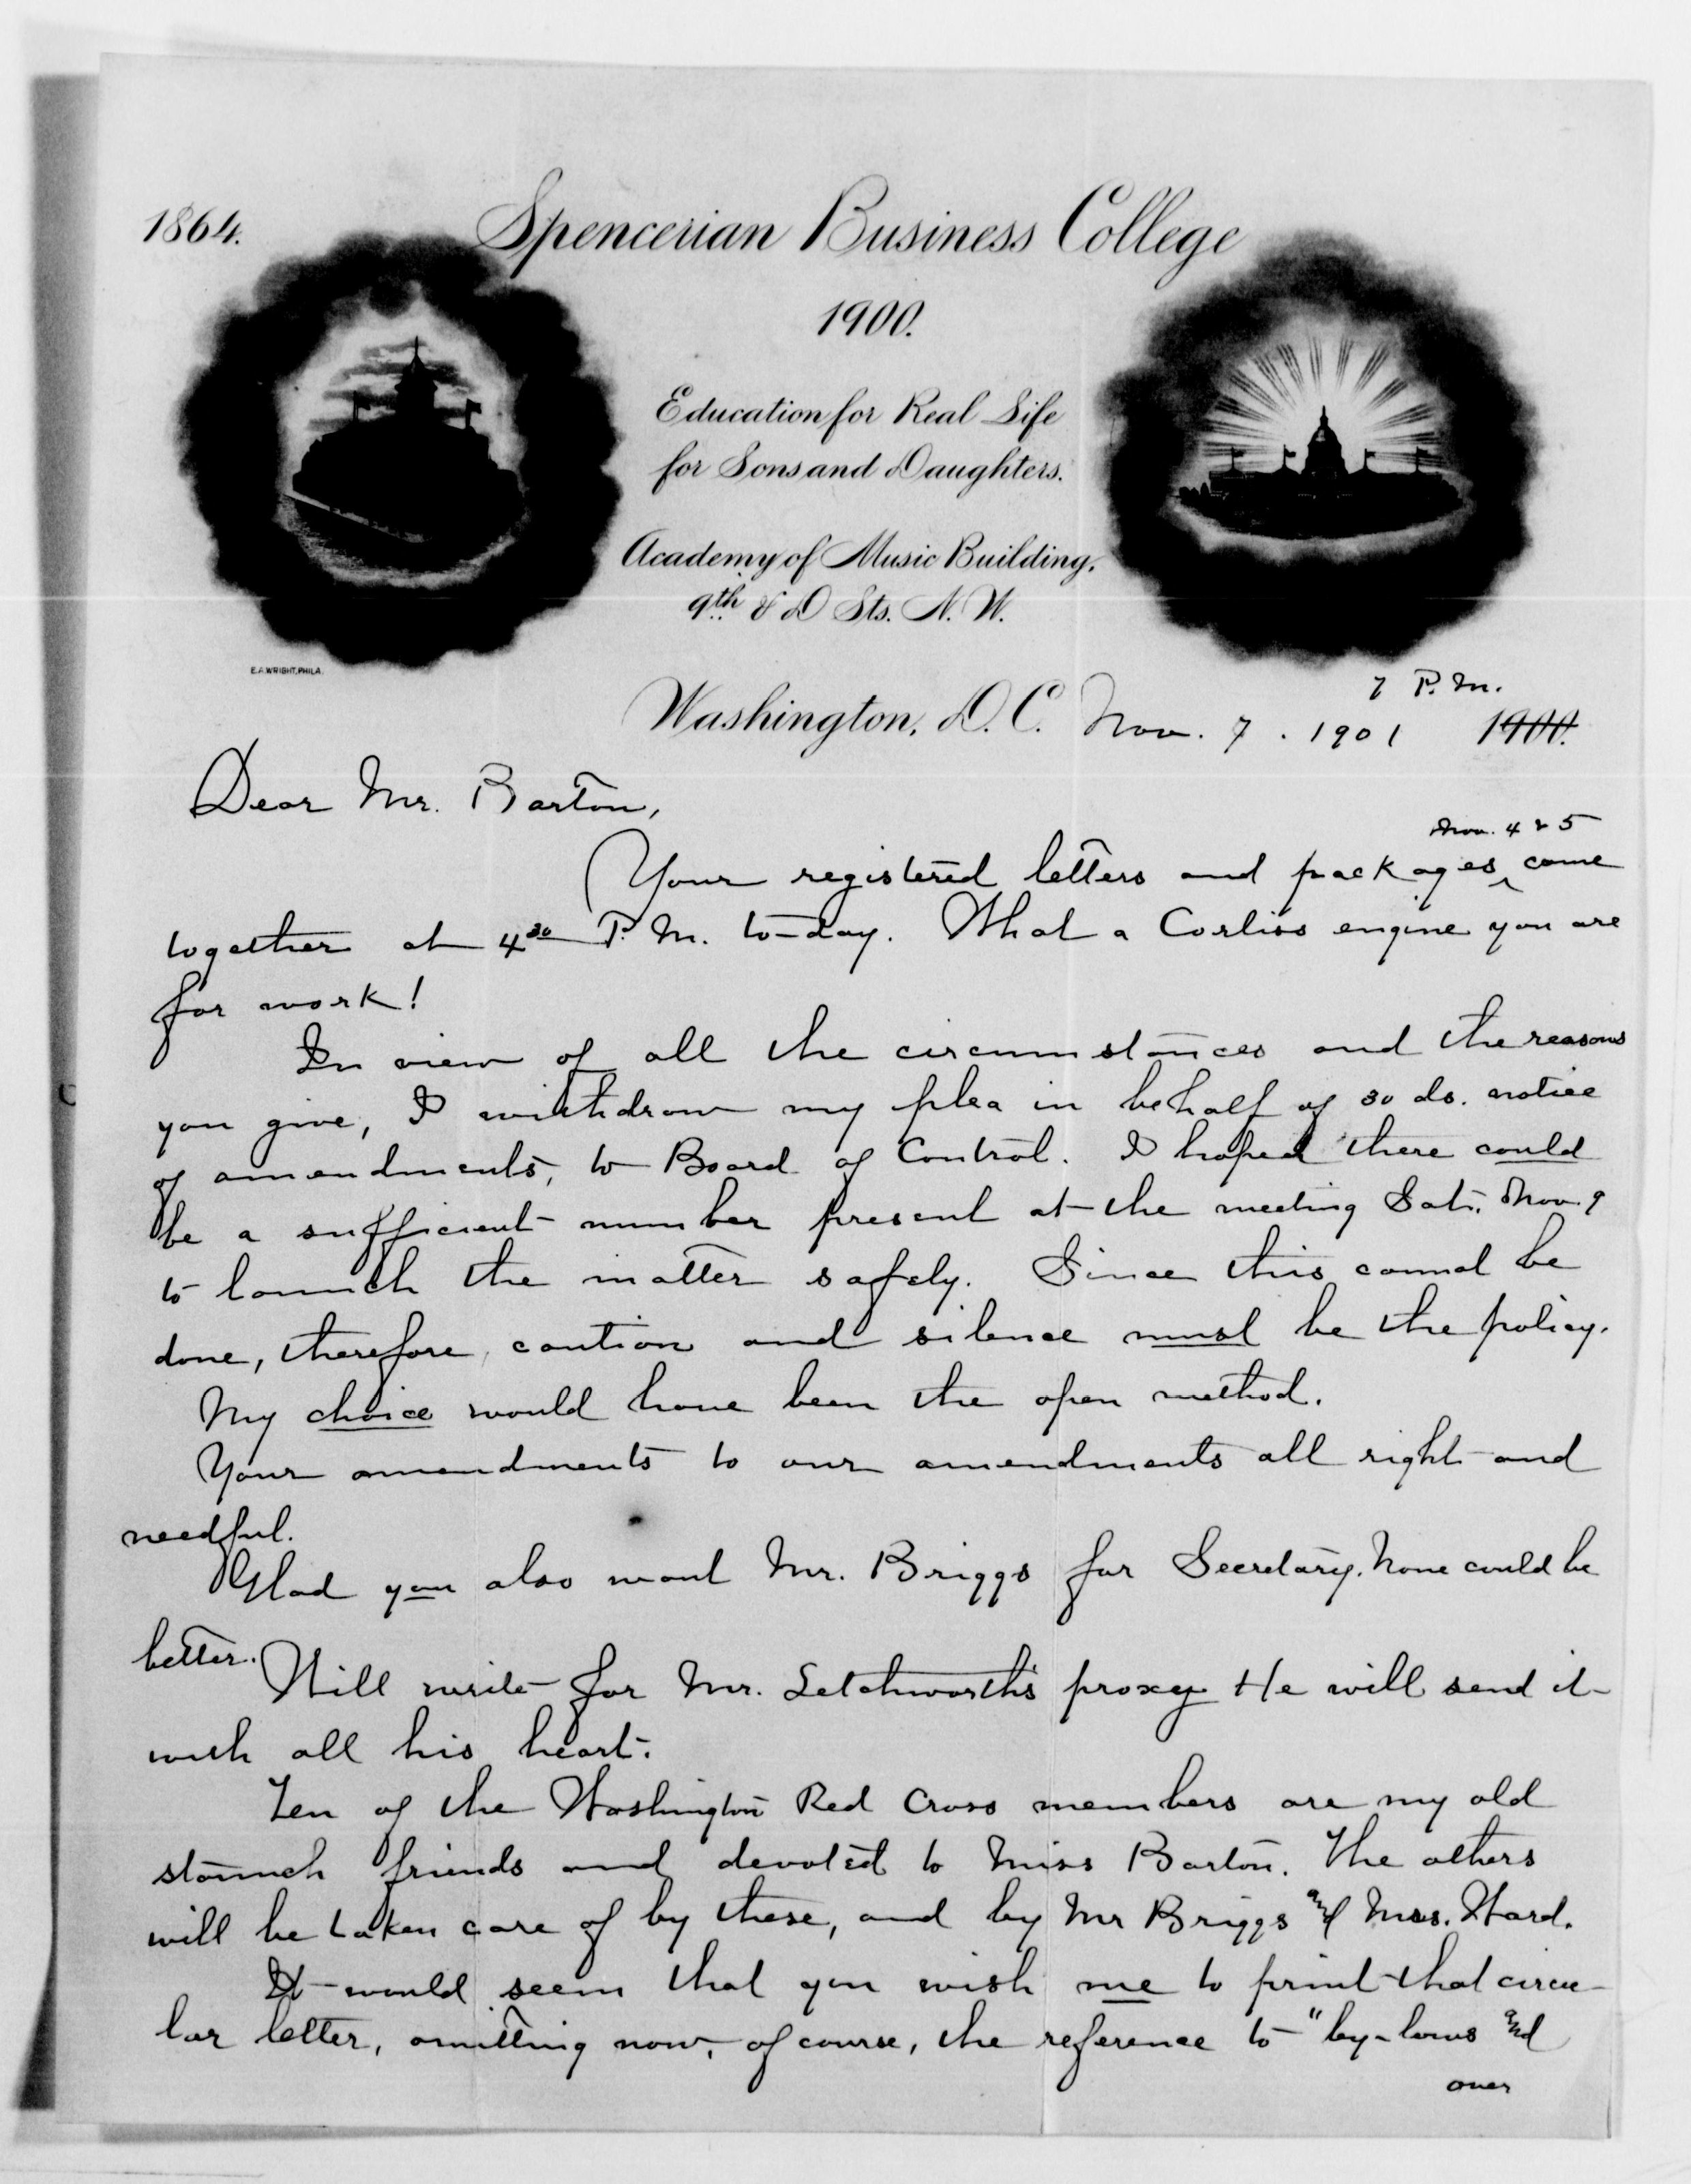 1864.
Spencerian Business College
1900.
Education for Real Life
for Sons and Daughters.
Academy of Music Building,
9th & D Sts. N. W.
E.A. WRIGHT, PHILA.
7 P. M.
Washington, D. C. Nov. 7. 1901 1900.
Dear Mr. Barton,
Nov. 4 & 5
Your registered letters and packages come
together at 4 30 P. M. to-day. What a Corliss engine you are
for work!
In view of all the circumstances and the reasons
you give, I withdraw my plea in behalf of 30 ds. notice
of amendments, to Board of Control. I hoped there could
be a sufficient number present at the meeting Sat. Nov. 9
to launch the matter safely. Since this cannot be
done, therefore, caution and silence must be the policy.
My choice would have been the open method.
Your amendments to our amendments all right and
needful.
Glad you also want Mr. Briggs for Secretary. None could be
better.
Will write for Mr. Letchworth's proxy He will send it
with all his heart.
Ten of the Washington Red Cross members are my old
staunch friends and devoted to Miss Barton. The others
will be taken care of by these, and by Mr Briggs and Mrs. Ward.
It would seem that you wish me to print that circu-
lar letter, omitting now, of course, the reference to "by-laws and
over